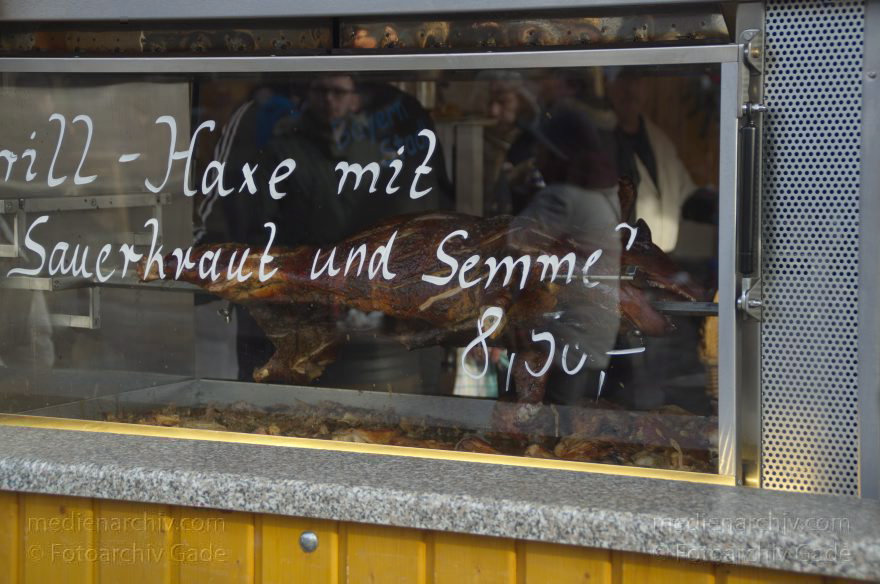 rill - Haxe mit
Sauerkraut und Semmel
8,50,-
Bayern
medienarchiv.com
© Fotoarchiv Gade
medienarchiv.com
© Fotoarchiv Gade